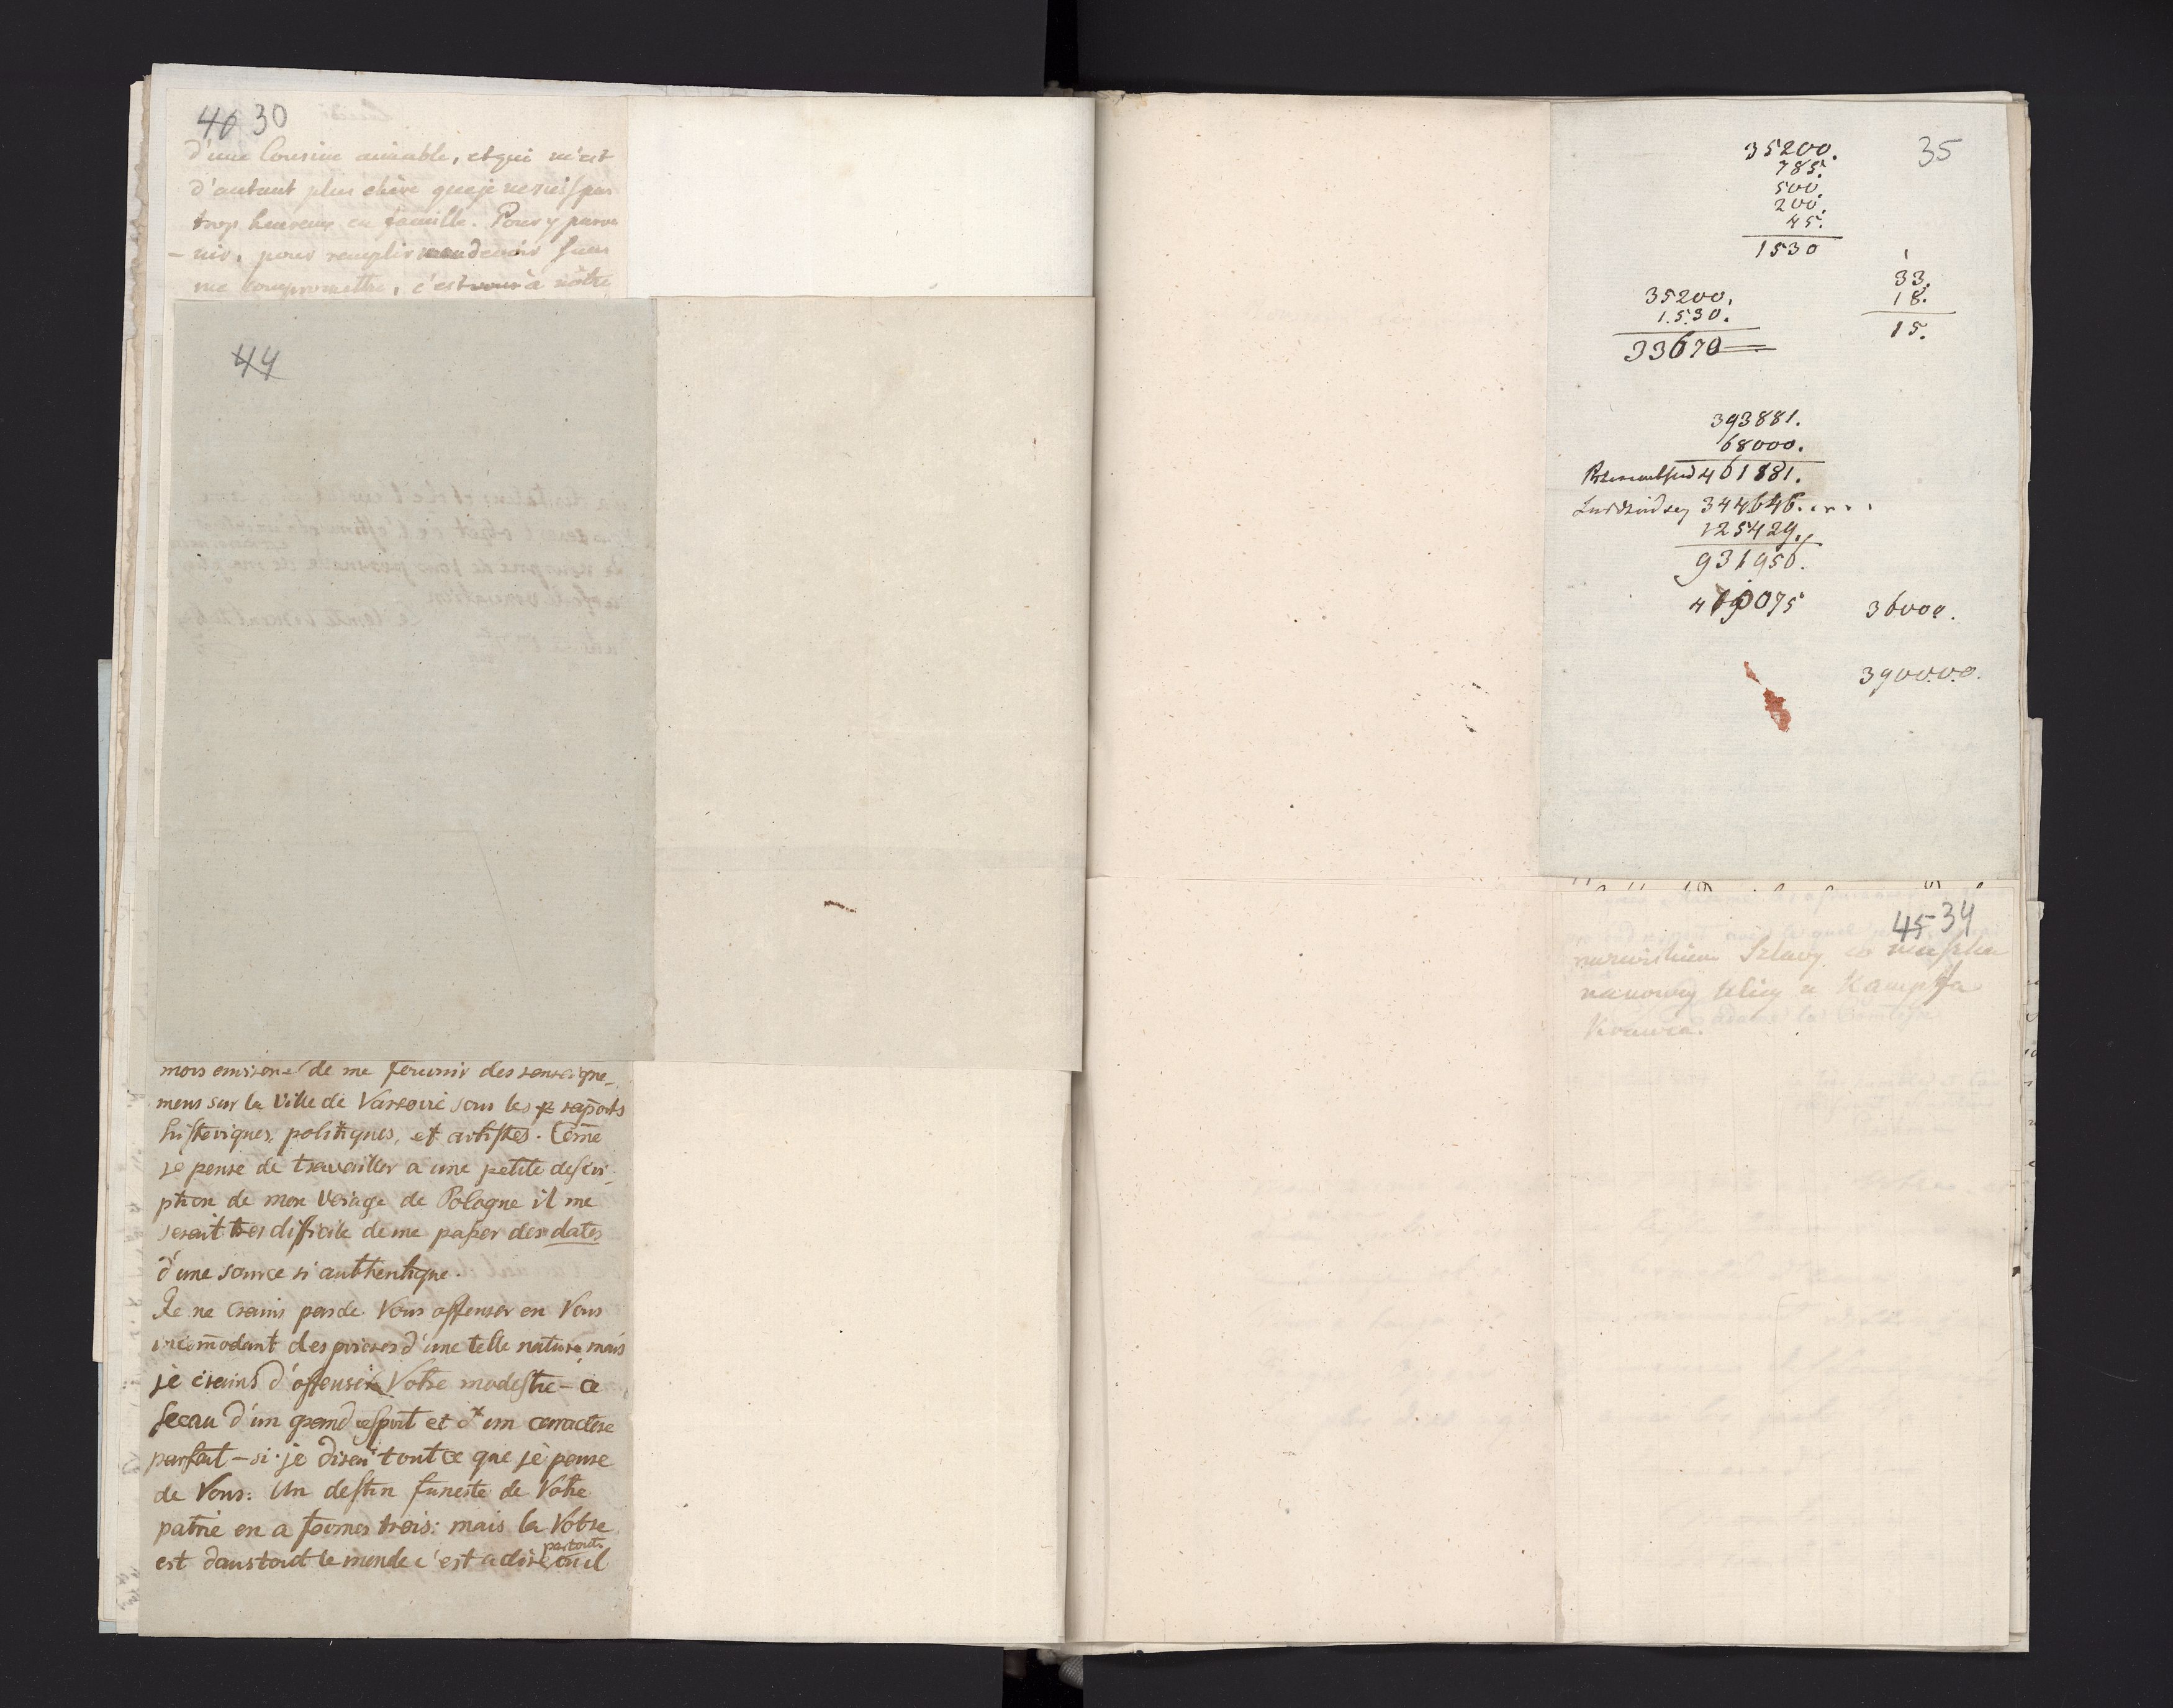 40 30
d'une Cousine aimable, et qui m'est
d'autant plus chère que je ne suis pas
trop heureux en famille. Pour y parve
- nir, pour remplir mon devoir sans
me compromettre, c'est à nôtre
44
mois environs de me fournir des renseigne-
mens sur la Ville de Varsovie sous les raports
historiques, politiques, et artistes. Come
je pense de travailler a une petite descri-
ption de mon Voiage de Pologne il me
serait tres difficile de me passer des dates
d'une source si authentique.
Je ne crains pas de Vous offenser en Vous
incomodant des prieres d'une telle nature mais
je crains d'offenser Votre modestie - ce
sceau d'un grand esprit et d'un caractere
parfait - si je disai tout ce que je pense
de Vous: Un destin funeste de Votre
patrie en a formes trois: mais la Votre
est dans tout le monde c'est a dire partout ou il
35
35200.
785.
500.
200.
45.
1530
33.
18.
15.
35200.
1.530.
33670
393881.
68000.
461881.
344646....
125429.
931956.
36000.
390000.
45 34
Szlavy
ulicy u Kampfa